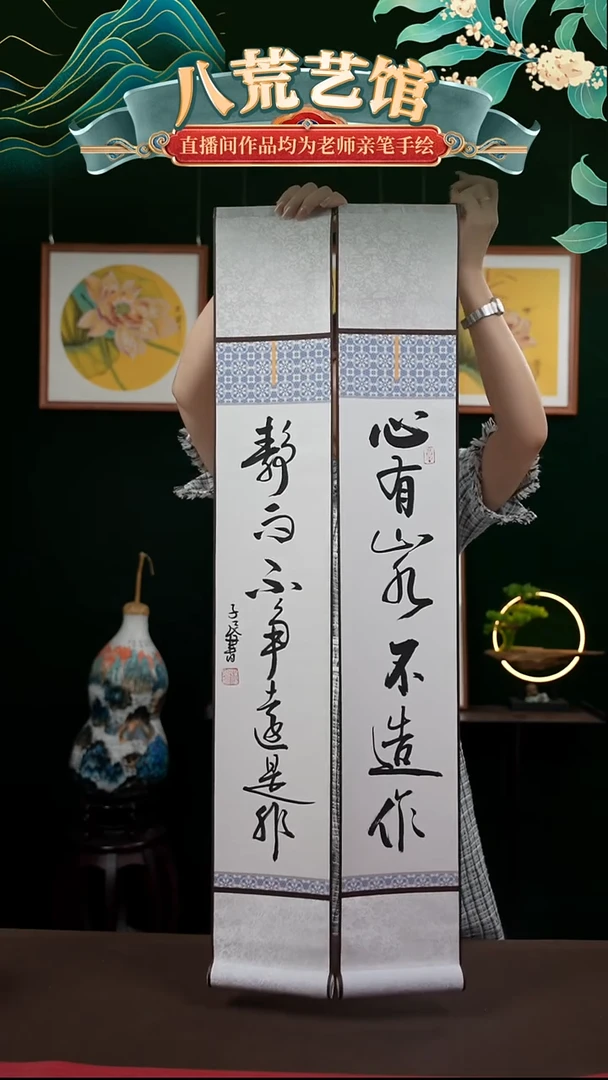 八荒艺馆
直播间作品均为老师亲笔手绘
心有山水不造作
静而不争遠是非